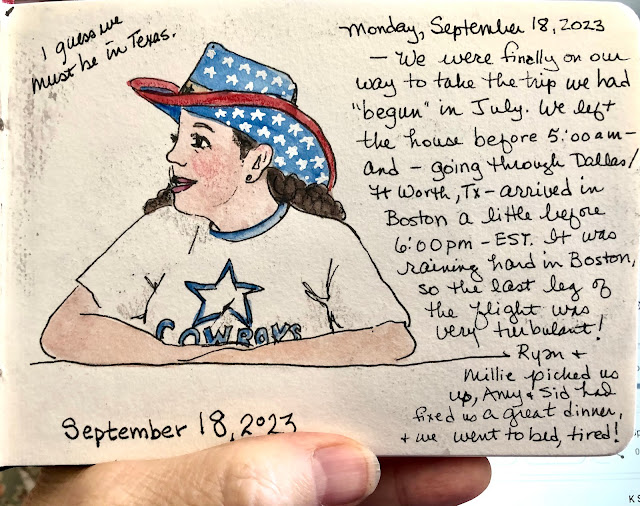 I guess we
must be in Texas.
Monday, September 18, 2023
— We were finally on our
way to take the trip we had
"begun" in July. We left
the house before 5:00am—
and – going through Dallas/
Ft Worth, Tx – arrived in
Boston a little before
6:00pm – EST. It was
raining hard in Boston,
so the last leg of
the flight was
very turbulent!
Ryan +
Millie picked us
up, Amy + Sid had
fixed us a great dinner,
+ we went to bed, tired!
COWBOYS
September 18, 2023
K S